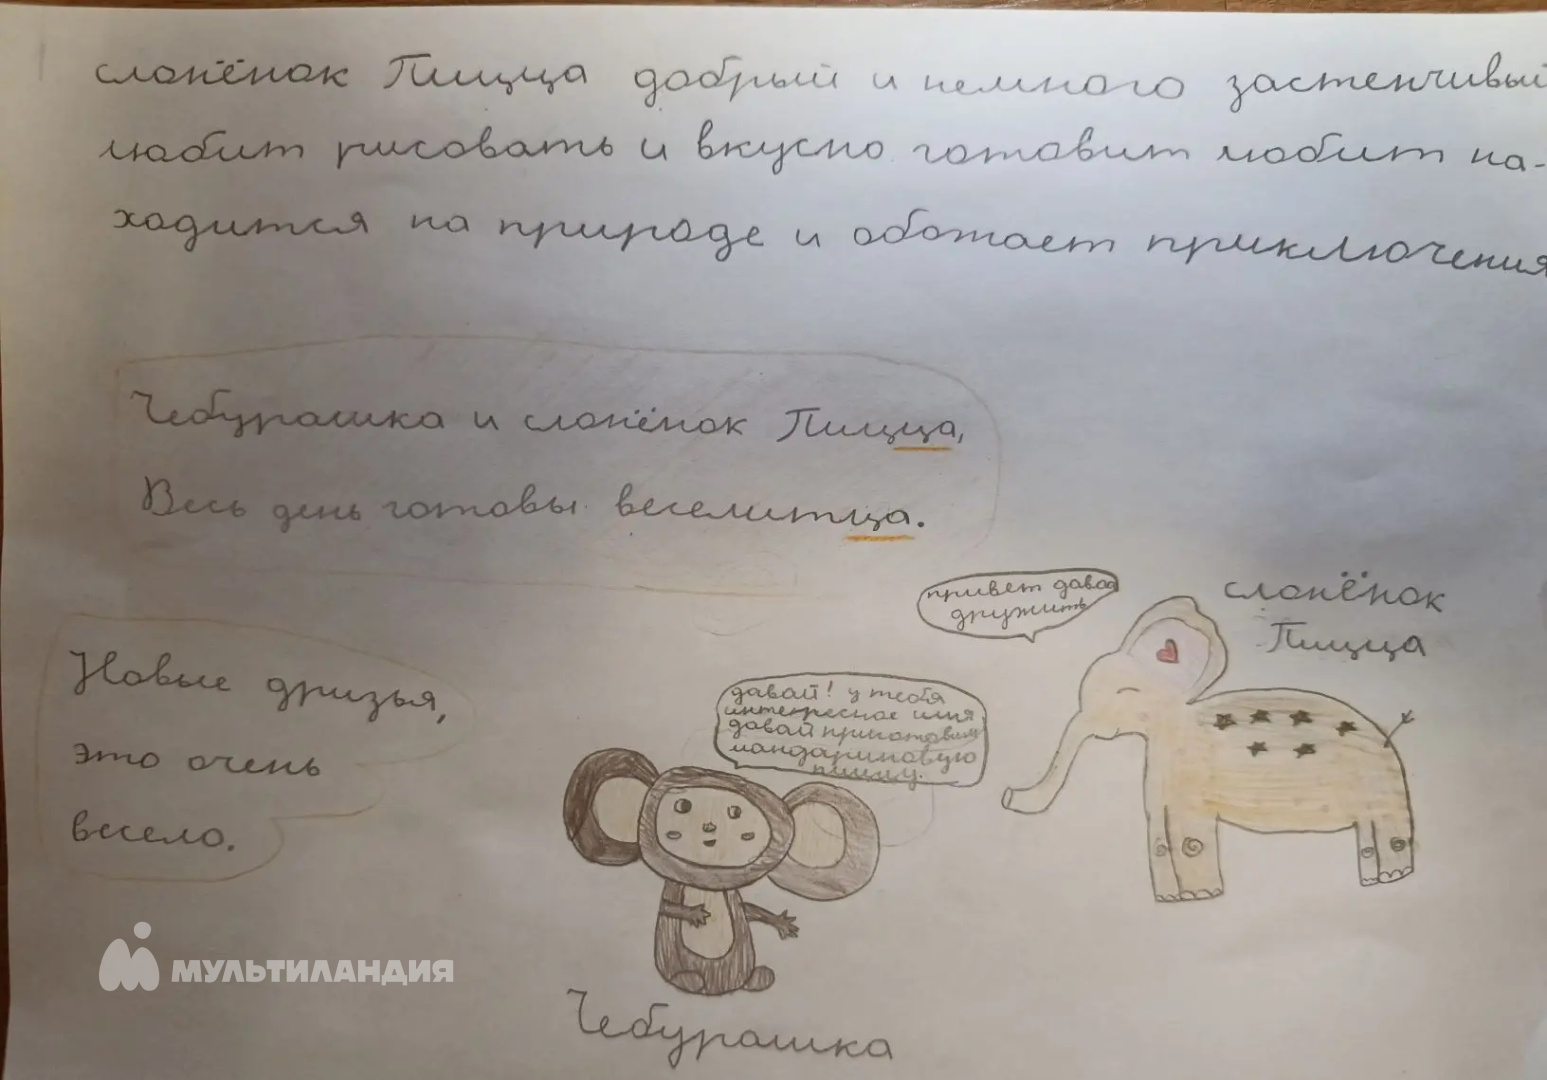 слонёнок Пицца добрый и немного застенчивый
любит рисовать и вкусно готовит любит на-
ходится на природе и обожает приключения
Чебурашка и слонёнок Пицца,
Весь день готовы веселитца.
привет давай
дружить
слонёнок
Пицца
Новые друзья,
это очень
весело.
давай! у тебя
интересное имя
давай приготовим
мандариновую
пиццу.
МУЛЬТИЛАНДИЯ
Чебурашка